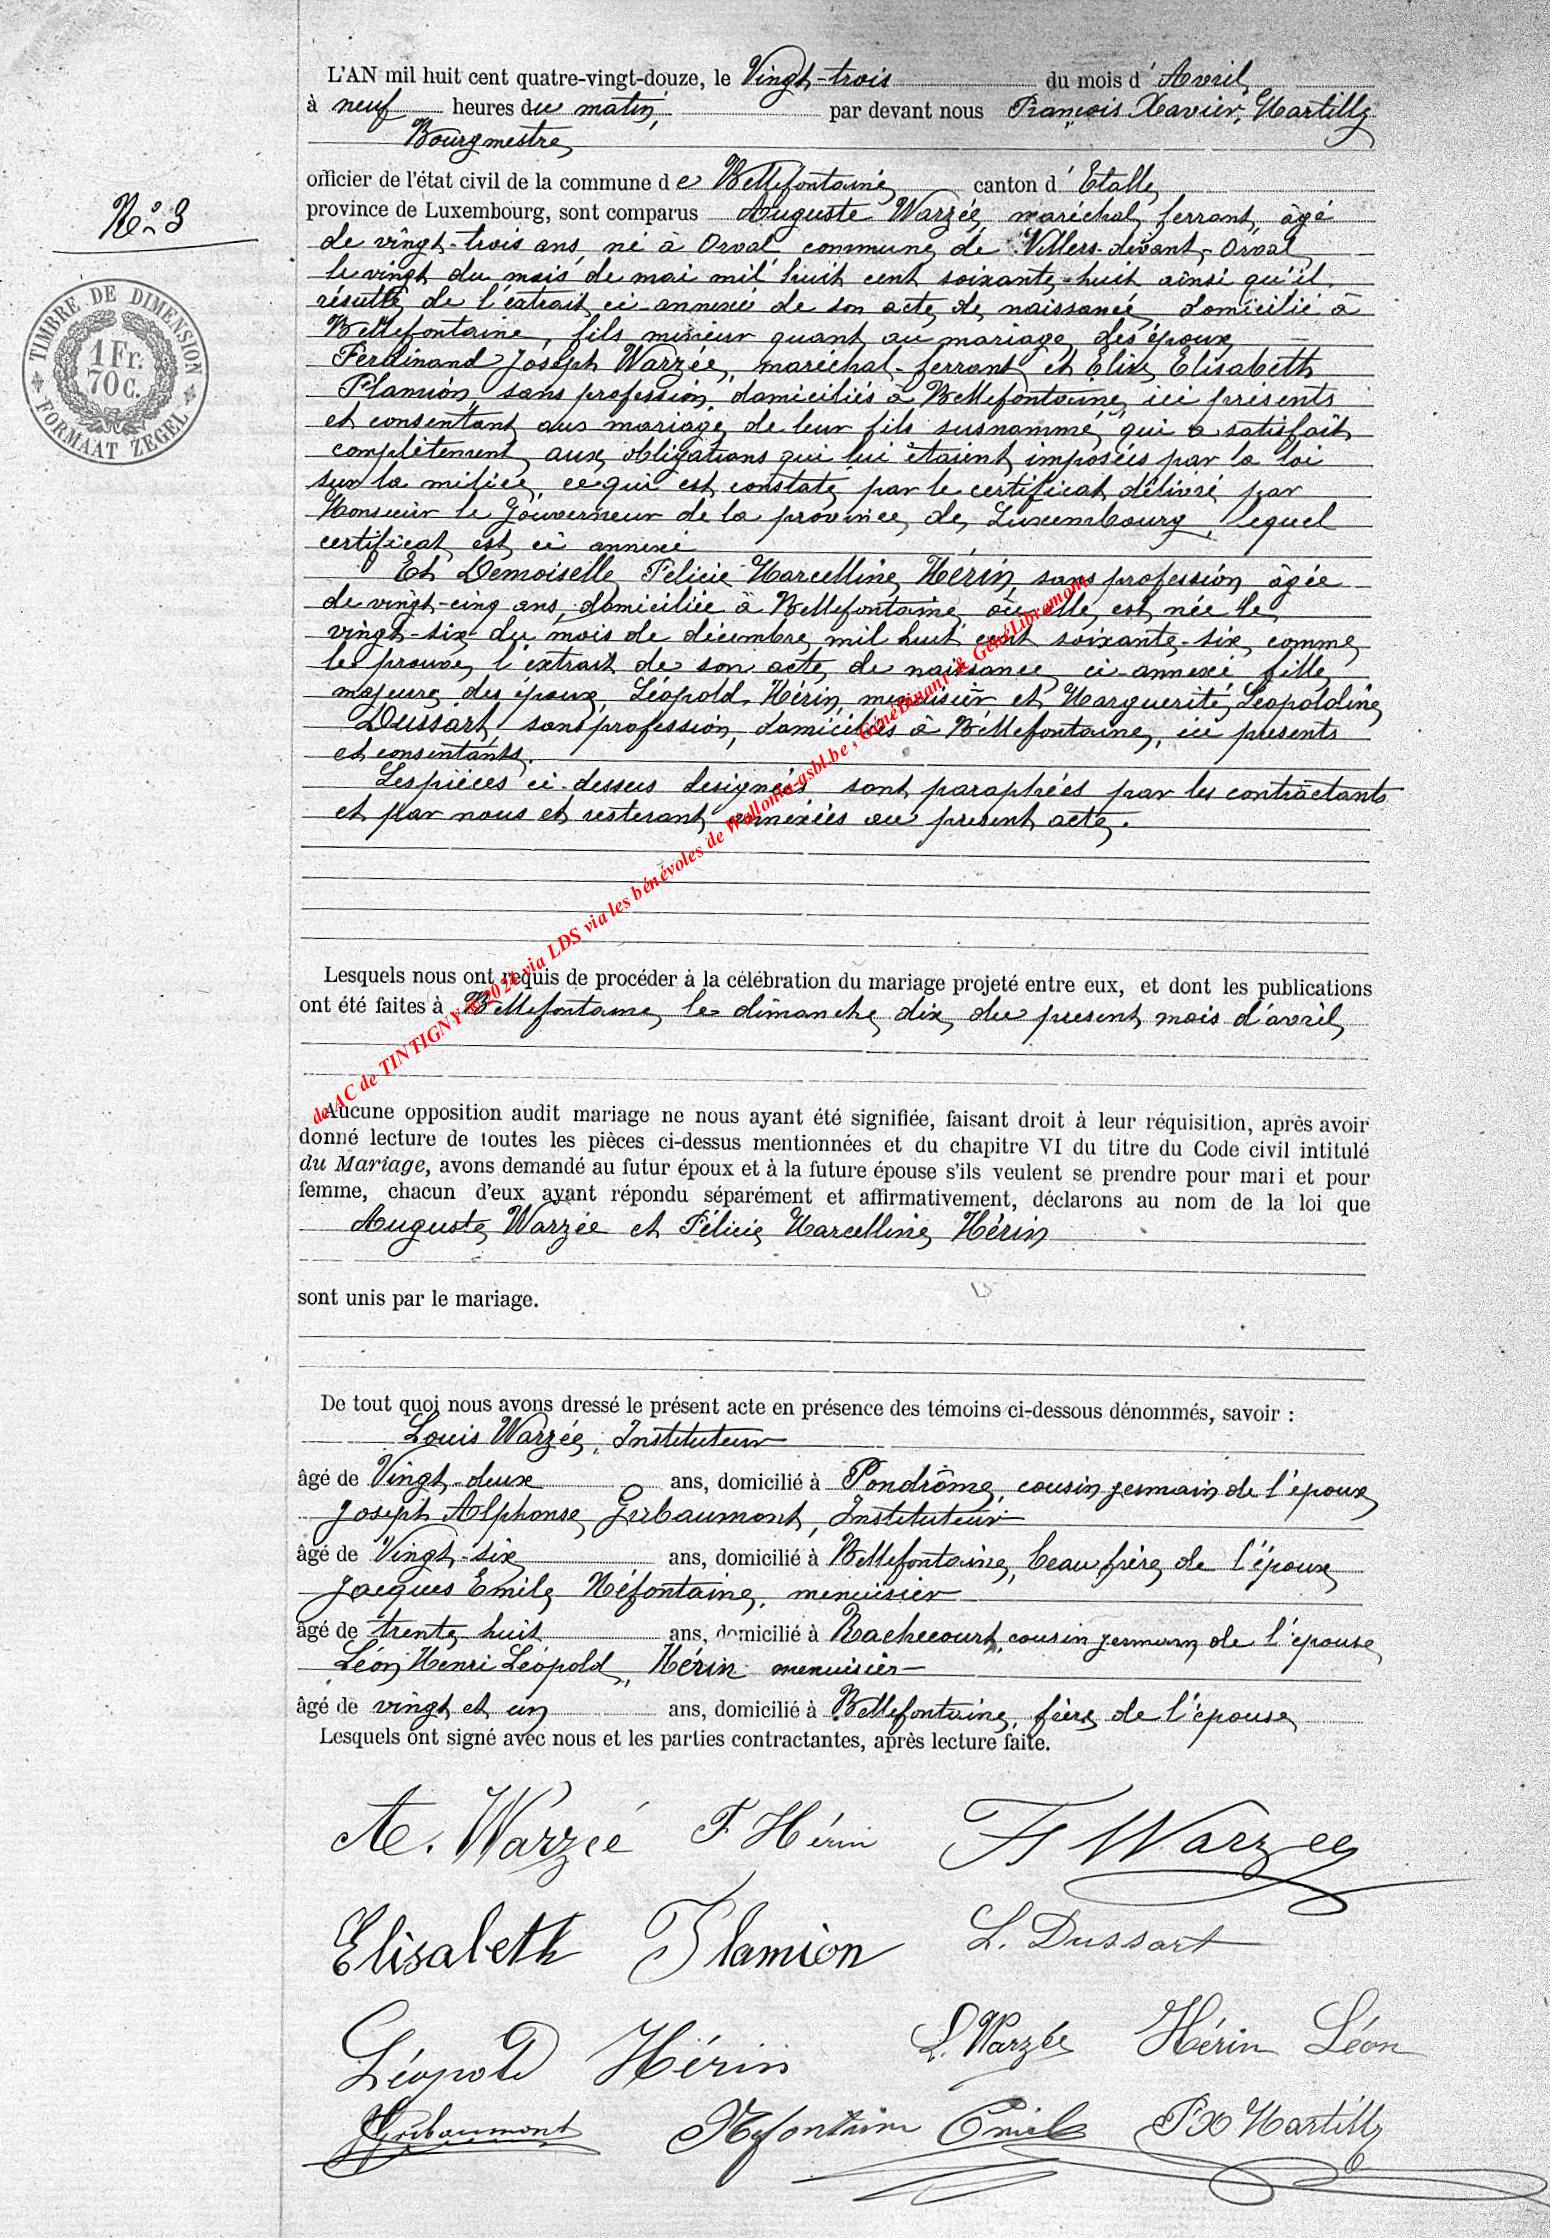 L'AN mil huit cent quatre-vingt-douze, le Vingt-trois du mois d' Avril
à neuf heures du matin, par devant nous François Xavier, Martilly
Bourgmestre
officier de l'état civil de la commune de Bellefontaine canton d' Etalle
province de Luxembourg, sont comparus Auguste Warzée, maréchal ferrant, âgé
de vingt-trois ans, né à Orval commune de Villers-devant-Orval
le vingt du mois de mai mil huit cent soixante-huit ainsi qu'il
résulte de l'extrait ci-annexée de son acte de naissance, domicilié à
Bellefontaine, fils mineur quant au mariage des époux
Ferdinand Joseph Warzée, maréchal-ferrant et Elise Elisabeth
Flamion, sans profession, domiciliés à Bellefontaine, ici présents
et consentant aux mariage de leur fils susnommé, qui a satisfait
complètement aux obligations qui lui étaient imposées par la loi
sur la milice, ce qui est constaté par le certificat délivré par
Monsieur le Gouverneur de la province de Luxembourg, lequel
certificat est ci annexé
Et Demoiselle Felicie Marcelline Hérin, sans profession, âgée
de vingt-cinq ans, domiciliée à Bellefontaine où elle est née le
vingt-six du mois de décembre mil huit cent soixante-six, comme
le prouve l'extrait de son acte de naissance ci-annexé fille
majeure des époux Léopold Hérin, menuisier et Marguerite Léopoldine
Dussart, sans profession, domiciliés à Bellefontaine, ici présents
et consentants.
Les pièces ci-dessus designées sont paraphées par les contractants
et par nous et resteront annexées au présent acte.
Lesquels nous ont requis de procéder à la célébration du mariage projeté entre eux, et dont les publications
ont été faites à Bellefontaine, le dimanche dix du présent mois d'avril
Aucune opposition audit mariage ne nous ayant été signifiée, faisant droit à leur réquisition, après avoir
donné lecture de toutes les pièces ci-dessus mentionnées et du chapitre VI du titre du Code civil intitulé
du Mariage, avons demandé au futur époux et à la future épouse s'ils veulent se prendre pour mari et pour
femme, chacun d'eux ayant répondu séparément et affirmativement, déclarons au nom de la loi que
Auguste Warzée et Félicie Marcelline Hérin
sont unis par le mariage.
De tout quoi nous avons dressé le présent acte en présence des témoins ci-dessous dénommés, savoir :
Louis Warzée, Instituteur
âgé de Vingt-deux ans, domicilié à Pondrôme, cousin germain de l'époux
Joseph Alphonse Gribaumont, Instituteur
âgé de Vingt-six ans, domicilié à Bellefontaine, beau frère de l'époux
Jacques Emile Néfontaine, menuisier
âgé de trente huit ans, domicilié à Rachecourt, cousin germain de l'épouse
Léon Henri Léopold, Hérin menuisier
âgé de vingt et un ans, domicilié à Bellefontaine, frère de l'épouse
Lesquels ont signé avec nous et les parties contractantes, après lecture faite.
A. Warzée F Hérin FJ Warzee
Elisabeth Flamion L. Dussart
Léopold Hérin L. Warzée Hérin Léon
Gribaumont Nefontaine Emile FX Martilly
No. 3
TIMBRE DE DIMENSION
1 Fr.
70 C.
FORMAAT ZEGEL
de AC de TINTIGNY ©2024 via LDS via les bénévoles de Wallonia-asbl.be, GénéDinant & GénéLibramont